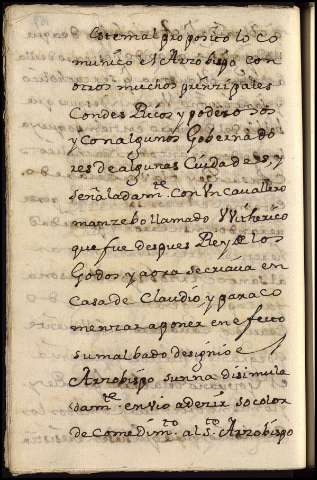 Este mal proposito lo co
munico el Arzobispo con
otros muchos principales
Condes Ricos y poderosos
y con algunos Governado
res de algunas Ciudades, y
señaladam.te con Vn Cavallero
manzebo llamado Witherico
que fue despues Rey de los
Godos y aora se criava en
Casa de Claudio, y para co
menzar a poner en efecto
su malbado designio el
Arzobispo Sunna disimula
dam.te envio a dezir so color
de Comedim.to al S.to Arzobispo